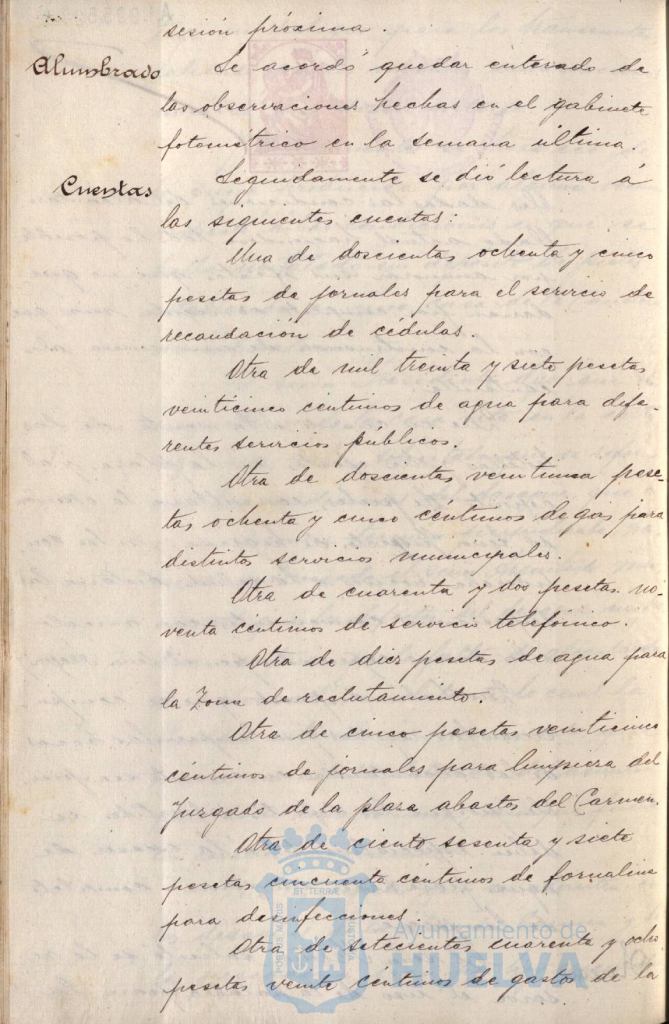 sesión próxima.
Alumbrado
Se acordó quedar enterado de
las observaciones hechas en el gabinete
fotométrico en la semana última.
Cuentas
Seguidamente se dió lectura á
las siguientes cuentas:
Una de doscientas ochenta y cinco
pesetas de jornales para el servicio de
recaudación de cédulas.
Otra de mil treinta y siete pesetas
veinticinco céntimos de agua para dife-
rentes servicios públicos.
Otra de doscientas veintiuna pese-
tas ochenta y cinco céntimos de gas para
distintos servicios municipales.
Otra de cuarenta y dos pesetas no-
venta céntimos de servicio telefónico.
Otra de diez pesetas de agua para
la Zona de reclutamiento.
Otra de cinco pesetas veinticinco
céntimos de jornales para limpieza del
Juzgado de la plaza abastos del Carmen.
Otra de ciento sesenta y siete
pesetas cincuenta céntimos de formalina
para desinfecciones.
Otra de setecientas cuarenta y ocho
pesetas veinte céntimos de gastos de la
Ayuntamiento de
HUELVA